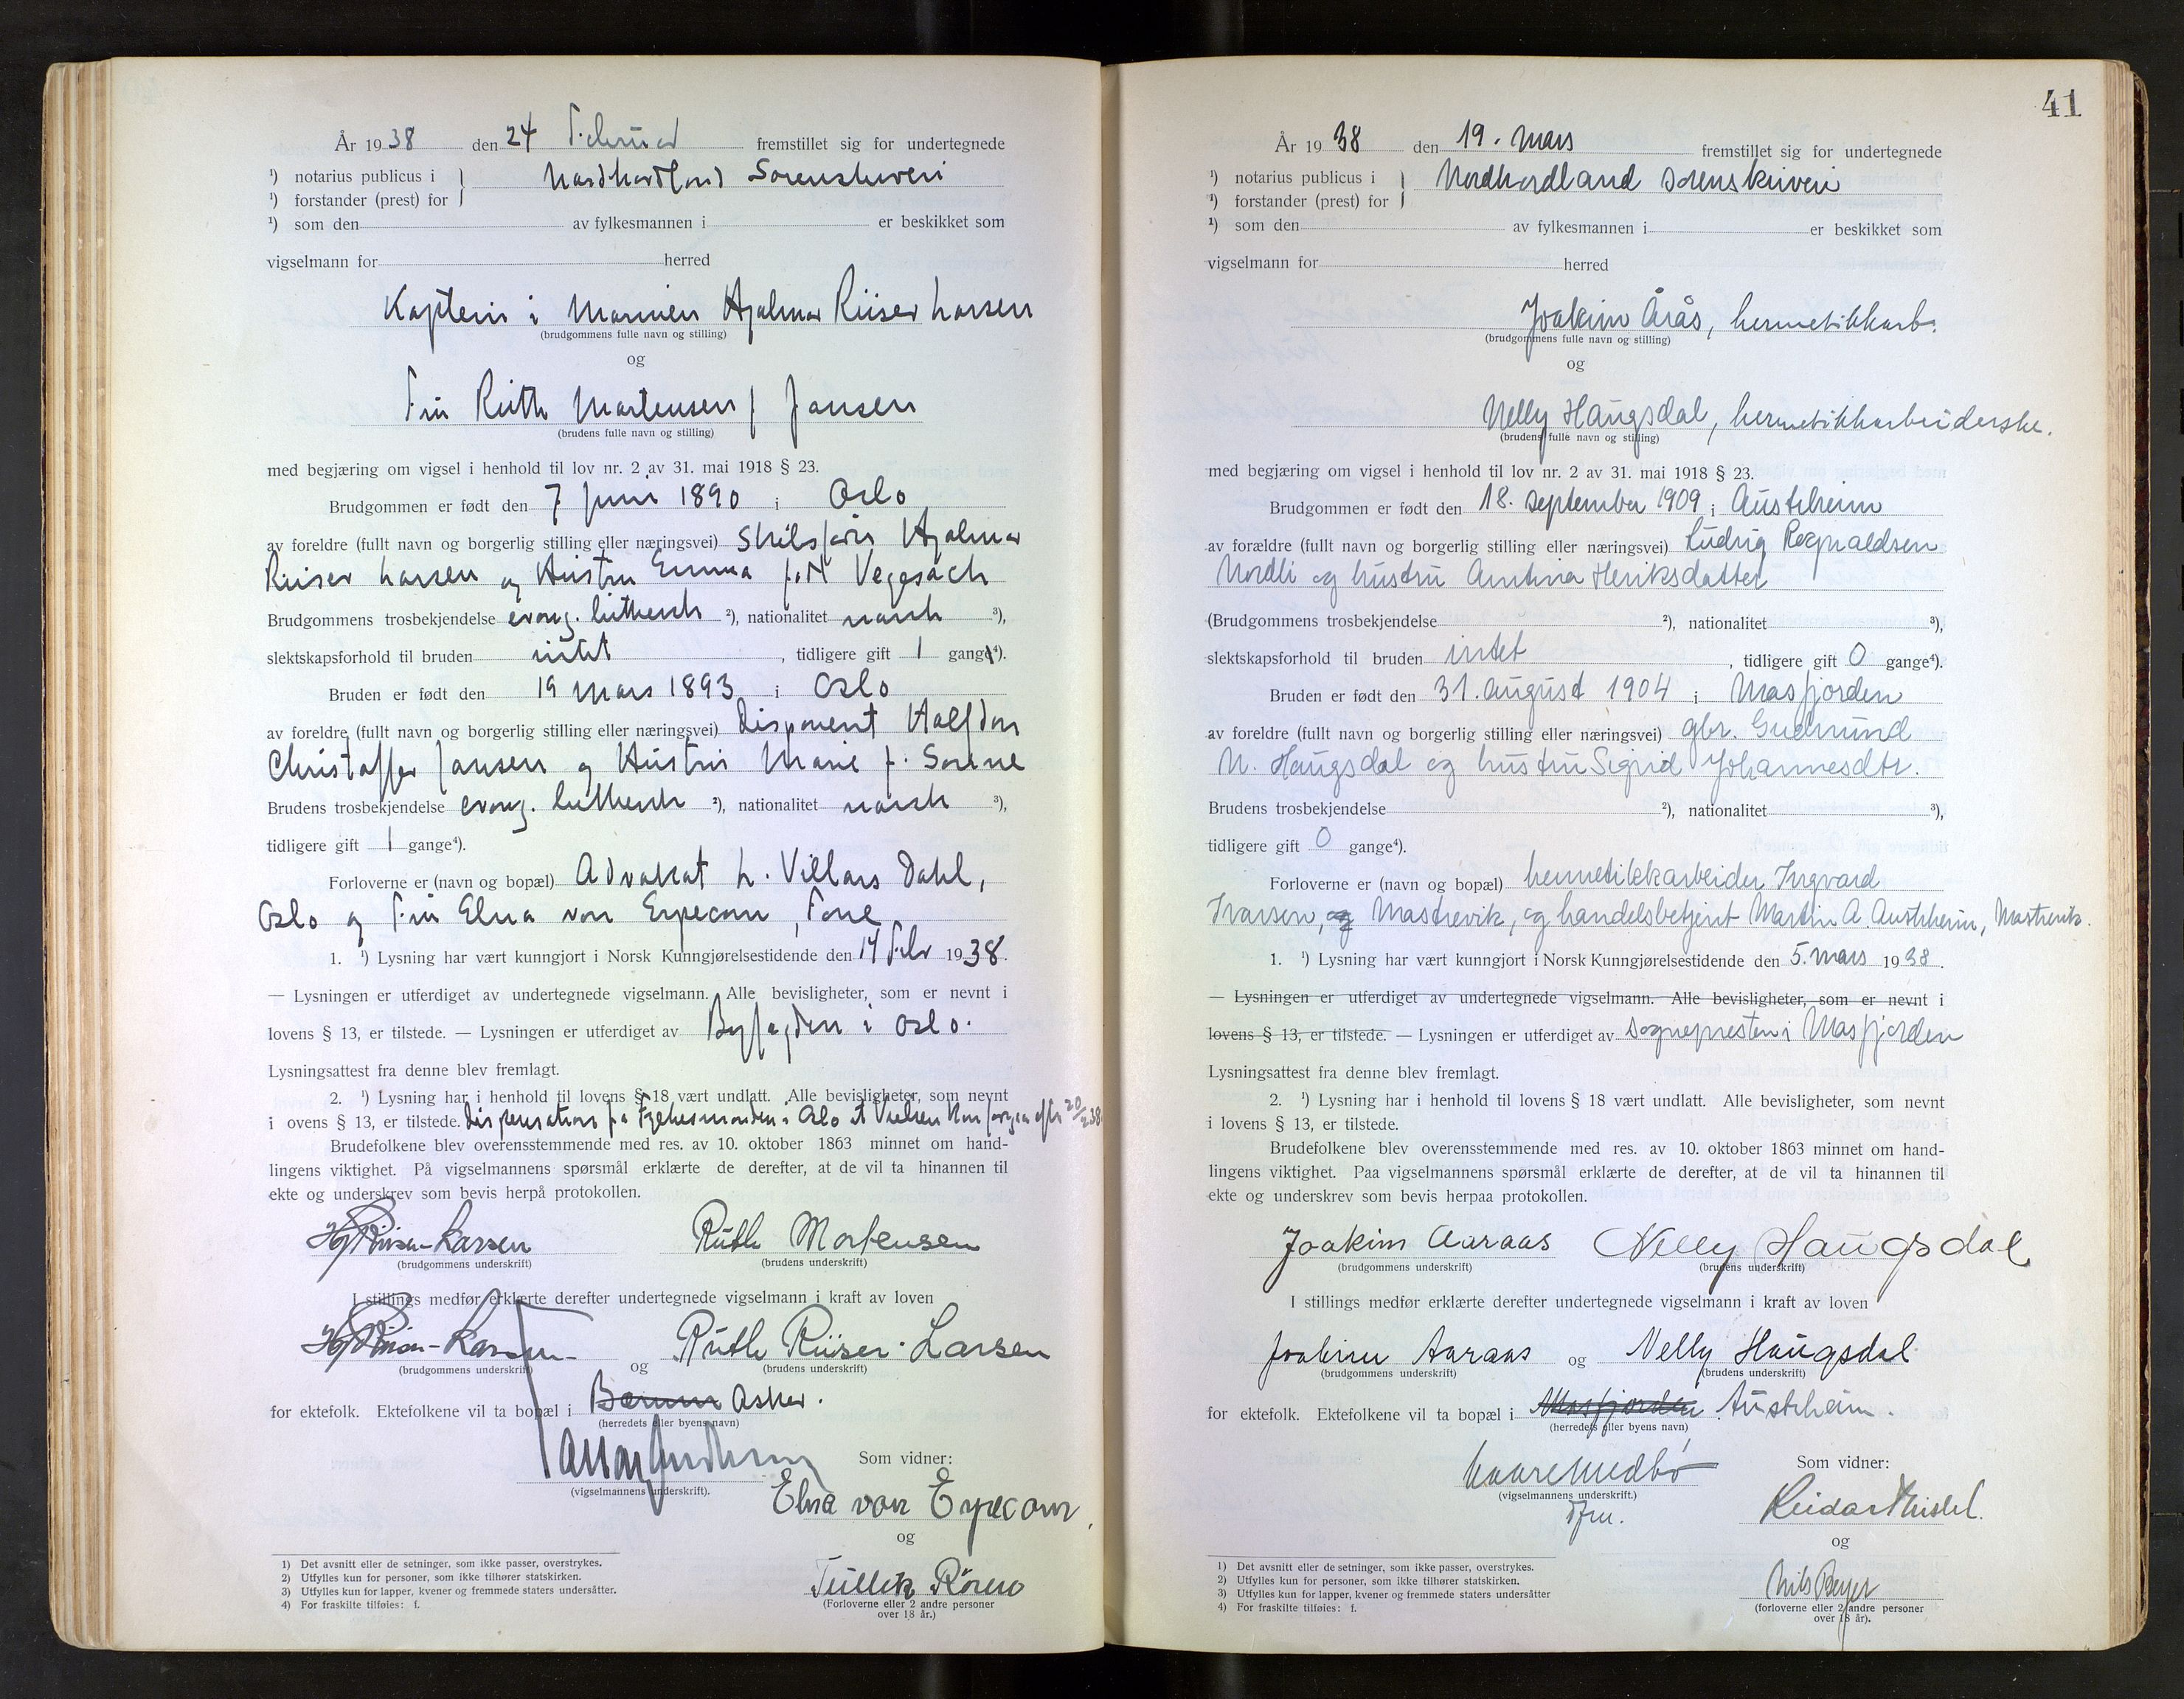 År 1938 den 24 Februar fremstillet sig for undertegnede
¹) notarius publicus i } Nordhordland Sorenskriveri
¹) forstander (prest) for
¹) som den av fylkesmannen i er beskikket som
vigselmann for herred
Kaptein i Marinen Hjalmar Riiser Larsen
(brudgommens fulle navn og stilling)
og
Fru Ruth Martensen f Jansen
(brudens fulle navn og stilling)
med begjæring om vigsel i henhold til lov nr. 2 av 31. mai 1918 § 23.
Brudgommen er født den 7 juni 1890 i Oslo
av foreldre (fullt navn og borgerlig stilling eller næringsvei) Skibsfører Hjalmar
Riiser Larsen og Hustru Emma født Vegesack
Brudgommens trosbekjendelse evang. luthersk ²), nationalitet norsk ³),
slektskapsforhold til bruden intet , tidligere gift 1 gang⁴).
Bruden er født den 19 mars 1893 i Oslo
av foreldre (fullt navn og borgerlig stilling eller næringsvei) Disponent Halfdan
Christoffer Jansen og Hustru Marie f.
Brudens trosbekjendelse evang. luthersk ²), nationalitet norsk ³),
tidligere gift 1 gange⁴).
Forloverne er (navn og bopæl) Advokat L. Villars Dahl,
Oslo og Fru Elna von Erpecom,
1. ¹) Lysning har vært kunngjort i Norsk Kunngjørelsestidende den 14 Febr 1938.
— Lysningen er utferdiget av undertegnede vigselmann. Alle bevisligheter, som er nevnt i
lovens § 13, er tilstede. — Lysningen er utferdiget av Byfogden i Oslo.
Lysningsattest fra denne blev fremlagt.
2. ¹) Lysning har i henhold til lovens § 18 vært undlatt. Alle bevisligheter, som nevnt
i ovens § 13, er tilstede. Dispensation fra Fylkesmanden i Oslo at Vielsen kan foregaa efter 20/2 38.
Brudefolkene blev overensstemmende med res. av 10. oktober 1863 minnet om hand-
lingens viktighet. På vigselmannens spørsmål erklærte de derefter, at de vil ta hinannen til
ekte og underskrev som bevis herpå protokollen.
Hj Riiser-Larsen Ruth Mortensen
(brudgommens underskrift) (brudens underskrift)
I stillings medfør erklærte derefter undertegnede vigselmann i kraft av loven
Hj Riiser-Larsen og Ruth Riiser-Larsen
(brudgommens underskrift) (brudens underskrift)
for ektefolk. Ektefolkene vil ta bopæl i Bærum Asker.
(herredets eller byens navn)
Som vidner:
(vigselmannens underskrift).
Elna von Erpecom.
og
Tullik
(Forloverne eller 2 andre personer
over 18 år.)
1) Det avsnitt eller de setninger, som ikke passer, overstrykes.
2) Utfylles kun for personer, som ikke tilhører statskirken.
3) Utfylles kun for lapper, kvener og fremmede staters undersåtter.
4) For fraskilte tilføies: f.
41
År 1938 den 19. Mars fremstillet sig for undertegnede
¹) notarius publicus i } Nordhordland sorenskriveri
¹) forstander (prest) for
¹) som den av fylkesmannen i er beskikket som
vigselmann for herred
Joakim Årås, hermetikkarb.
(brudgommens fulle navn og stilling)
og
Nelly Haugsdal, hermetikkarbeiderske.
(brudens fulle navn og stilling)
med begjæring om vigsel i henhold til lov nr. 2 av 31. mai 1918 § 23.
Brudgommen er født den 18. september 1909 i Austrheim
av forældre (fullt navn og borgerlig stilling eller næringsvei) Ludvig Regnaldsen
Nordli og hustru Antina Heriksdatter
(Brudgommens trosbekjendelse ²), nationalitet ³),
slektskapsforhold til bruden intet , tidligere gift 0 gange⁴).
Bruden er født den 31. august 1904 i Masfjorden
av foreldre (fullt navn og borgerlig stilling eller næringsvei) gbr. Gudmund
N. Haugsdal og hustru Sigrid Johannesdtr.
Brudens trosbekjendelse ²), nationalitet ³),
tidligere gift 0 gange⁴).
Forloverne er (navn og bopæl) hermetikkarbeider Ingvard
Ivarsen, og Mastrevik, og handelsbetjent Martin A. Austrheim, Mastrevik.
1. ¹) Lysning har vært kunngjort i Norsk Kunngjørelsestidende den 5. mars 1938.
— Lysningen er utferdiget av undertegnede vigselmann. Alle bevisligheter, som er nevnt i
lovens § 13, er tilstede. — Lysningen er utferdiget av sognepresten i Masfjorden
Lysningsattest fra denne blev fremlagt.
2. ¹) Lysning har i henhold til lovens § 18 vært undlatt. Alle bevisligheter, som nevnt
i lovens § 13, er tilstede.
Brudefolkene blev overensstemmende med res. av 10. oktober 1863 minnet om hand-
lingens viktighet. Paa vigselmannens spørsmål erklærte de derefter, at de vil ta hinannen til
ekte og underskrev som bevis herpaa protokollen.
Joakim Aaraas Nelly Haugsdal
(brudgommens underskrift) (brudens underskrift)
I stillings medfør erklærte derefter undertegnede vigselmann i kraft av loven
Joakim Aaraas og Nelly Haugsdal
(brudgommens underskrift) (brudens underskrift)
for ektefolk. Ektefolkene vil ta bopæl i Masfjorden Austrheim.
(herredets eller byens navn)
Kaare Medbø Som vidner:
(vigselmannens underskrift.)
dfm. Reidar
og
Nils Beyer
(forloverne eller 2 andre personer
over 18 år).
1) Det avsnitt eller de setninger, som ikke passer, overstrykes.
2) Utfylles kun for personer, som ikke tilhører statskirken.
3) Utfylles kun for lapper, kvener og fremmede staters undersåtter
4) For fraskilte tilføies: f.